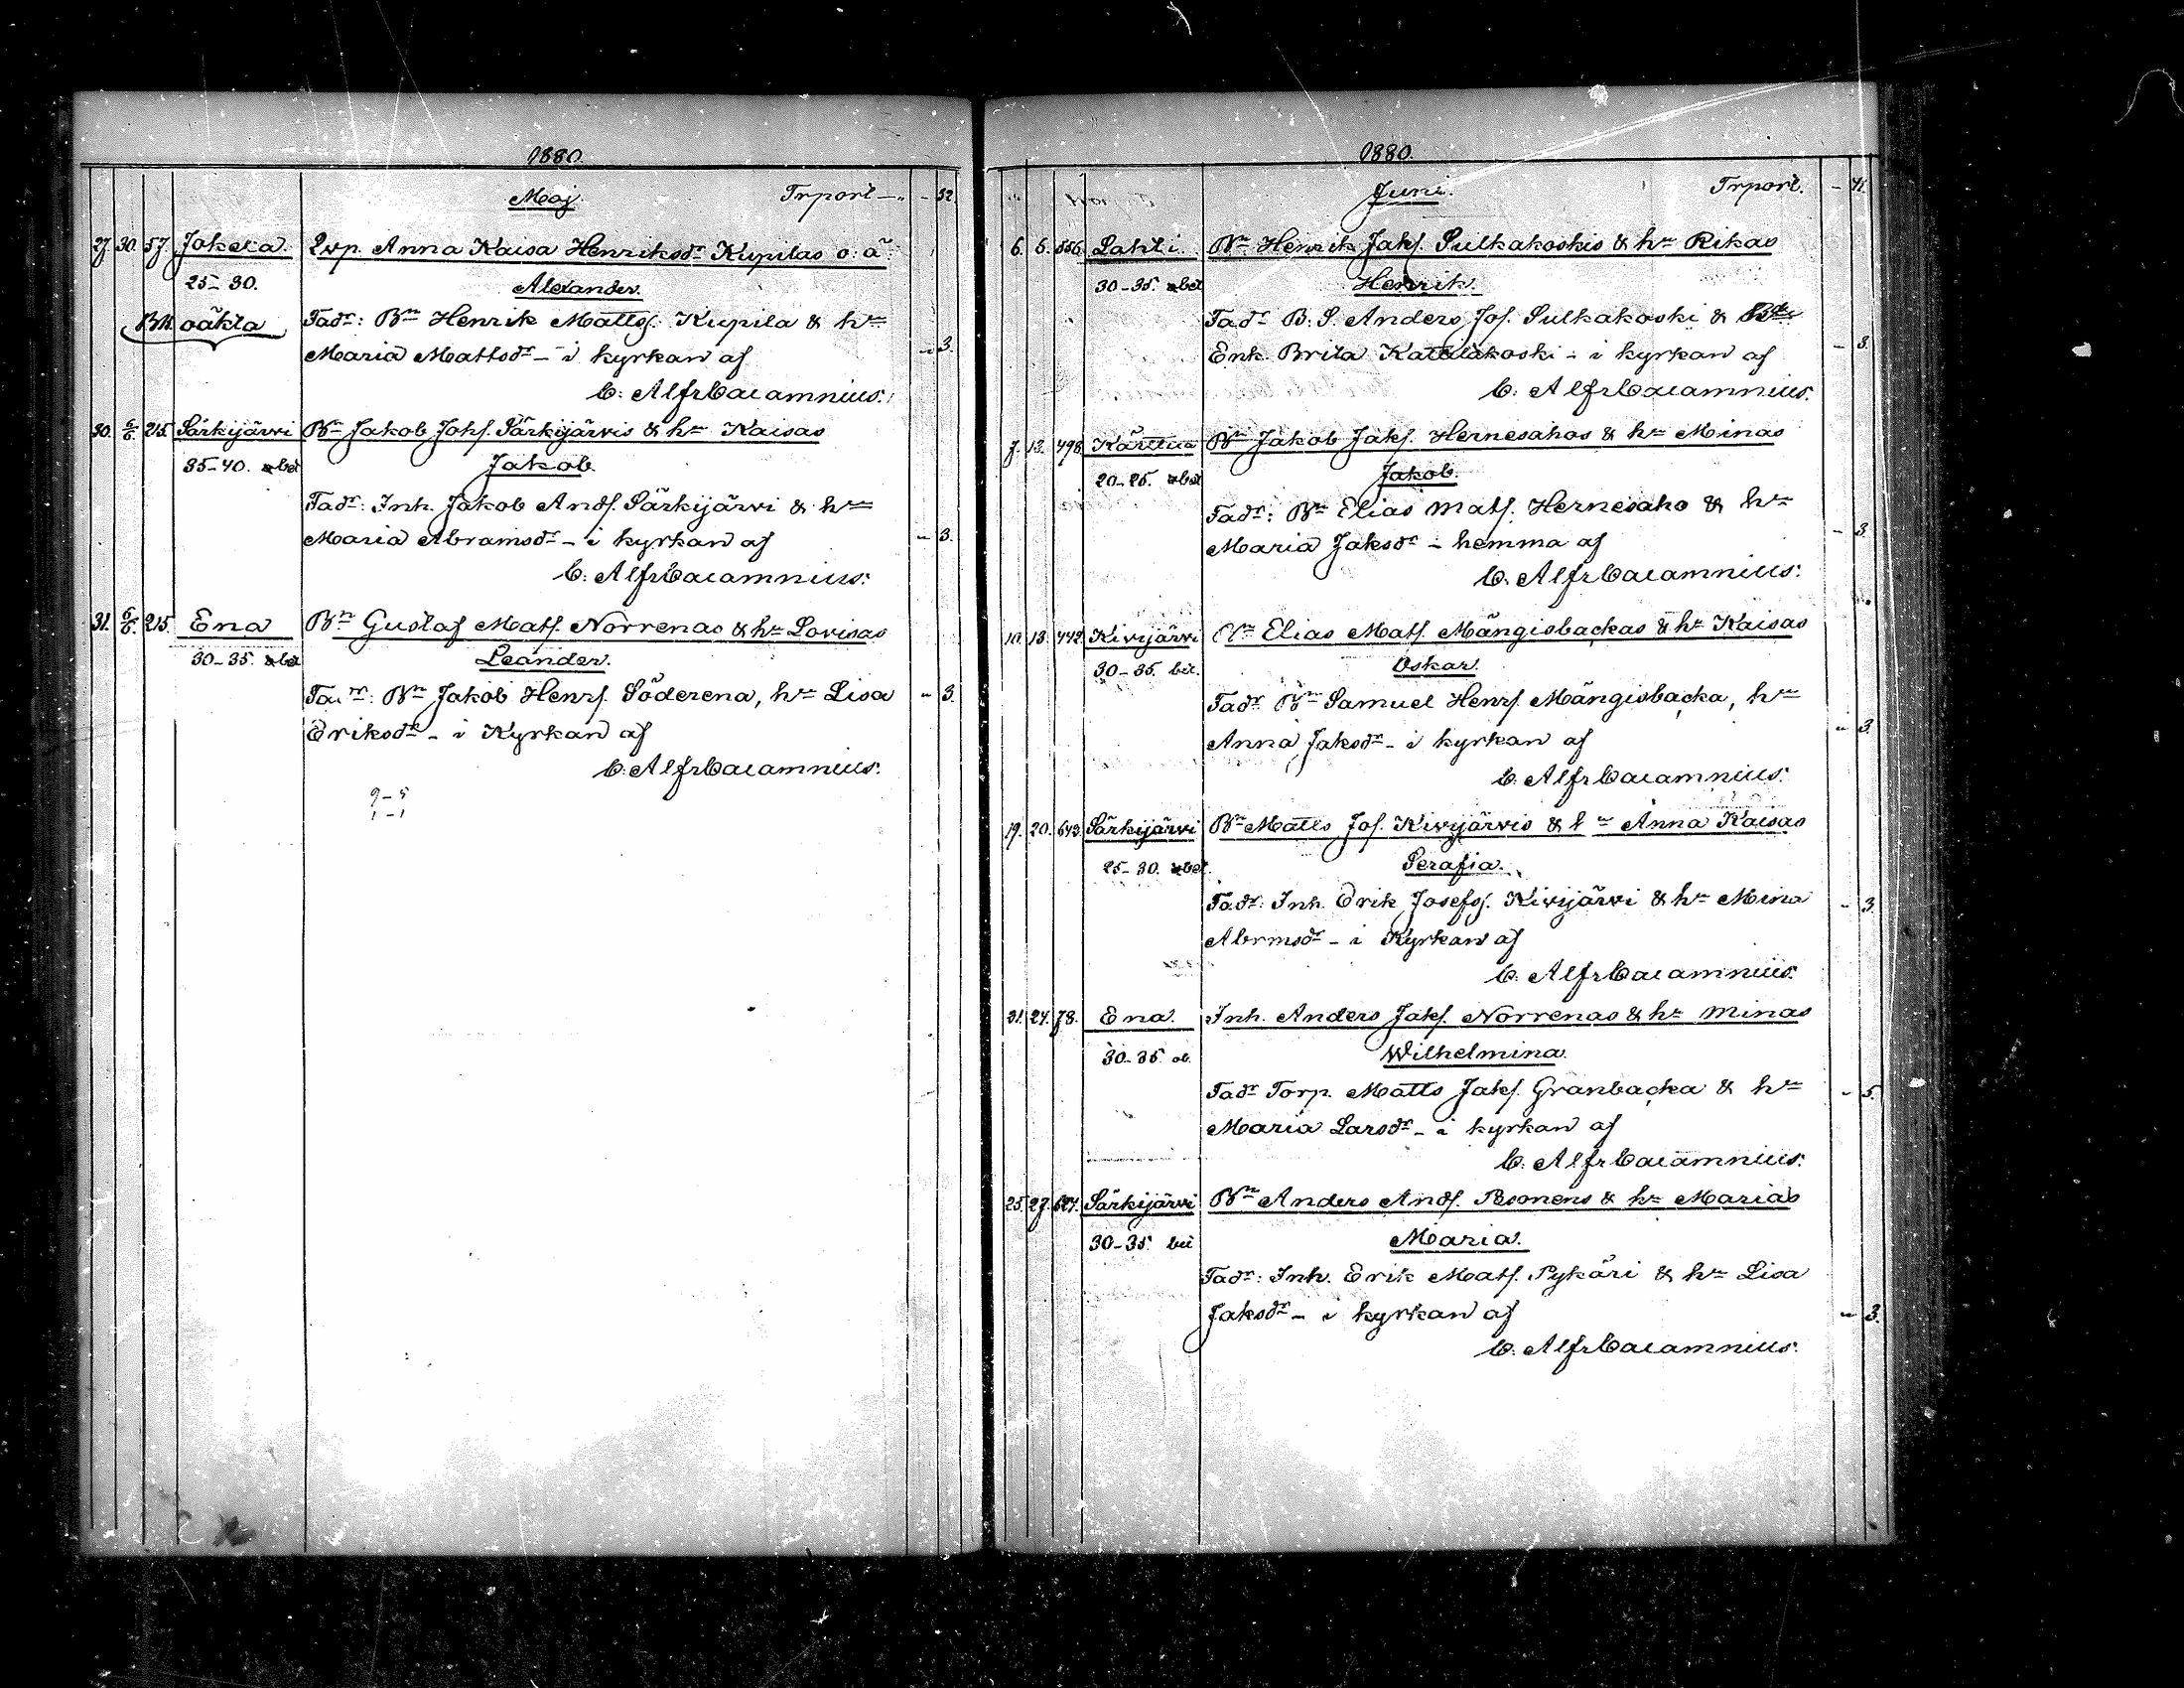 1880.
Maj. Trport — „ - 32.
27. 30. 57. Jokela. Qvp. Anna Kaisa Henriksdr Kupilas o: ä:
25-30. Alexander.
oäkta Fadr: Bn Henrik Matts. Kupila & hn
Maria Mattsdr - i kyrkan af - 3.
C: Alfr Cajamnius.
30. 6/6. 215. Särkijärvi Bn Jakob Johs. Särkijärvis & hn Kaisas
35-40. bet Jakob.
Fadr: Inh. Jakob Ands. Särkijärvi & hn
Maria Abramsdr - i kyrkan af - 3.
C: Alfr Cajamnius.
31. 6/6. 215. Ena Bn Gustaf Mats. Norrenas & hn Lovisas
30-35. bet Leander.
Fadr: Bn Jakob Henrs. Söderena, hn Lisa - 3.
Eriksdr - i Kyrkan af
C: Alfr Cajamnius.
9-5
1-1
1880.
Juni. Trport. - 41.
6. 6. 556. Lahti Bn Henrik Jaks. Sulkakoskis & hn Rikas
30-35. bet Henrik.
Fadr B. S. Anders Jos. Sulkakoski &
Enk. Brita Kattilakoski - i kyrkan af - 3.
C: Alfr Cajamnius.
7. 13. 498. Bn Jakob Jaks. Hernesahos & hn Minas
20-25. bet Jakob.
Fadr: Bn Elias Mats. Hernesaho & hn
Maria Jaksdr - hemma af - 3.
C: Alfr Cajamnius.
10. 13. 442. Kivijärvi Bn Elias Mats. Mängisbackas & hn Kaisas
30-35. bet. Oskar.
Fadr Bn Samuel Henrs. Mängisbacka, hn
Anna Jaksdr - i kyrkan af - 3.
C: Alfr Cajamnius.
19. 20. 643. Särkijärvi Bn Matts Jos. Kivijärvis & hn Anna Kaisas
25-30. bet. Serafia.
Fadr: Inh. Erik Josefs. Kivijärvi & hn Mina - 3.
Abrmsdr - i Kyrkan af
C: Alfr Cajamnius.
21. 24. 78. Ena. Inh. Anders Jaks. Norrenas & hn Minas
30-35 ob. Wilhelmina.
Fadr Torp. Matts Jaks. Granbacka & hn - 5.
Maria Larsdr - i kyrkan af
C: Alfr Cajamnius.
25. 27. 627. Särkijärvi Bn Anders Ands. Pesonens & hn Marias
30-35. bet Maria.
Fadr: Inh. Erik Mats. Pykäri & hn Lisa
Jaksdr - i kyrkan af - 3.
C: Alfr Cajamnius.